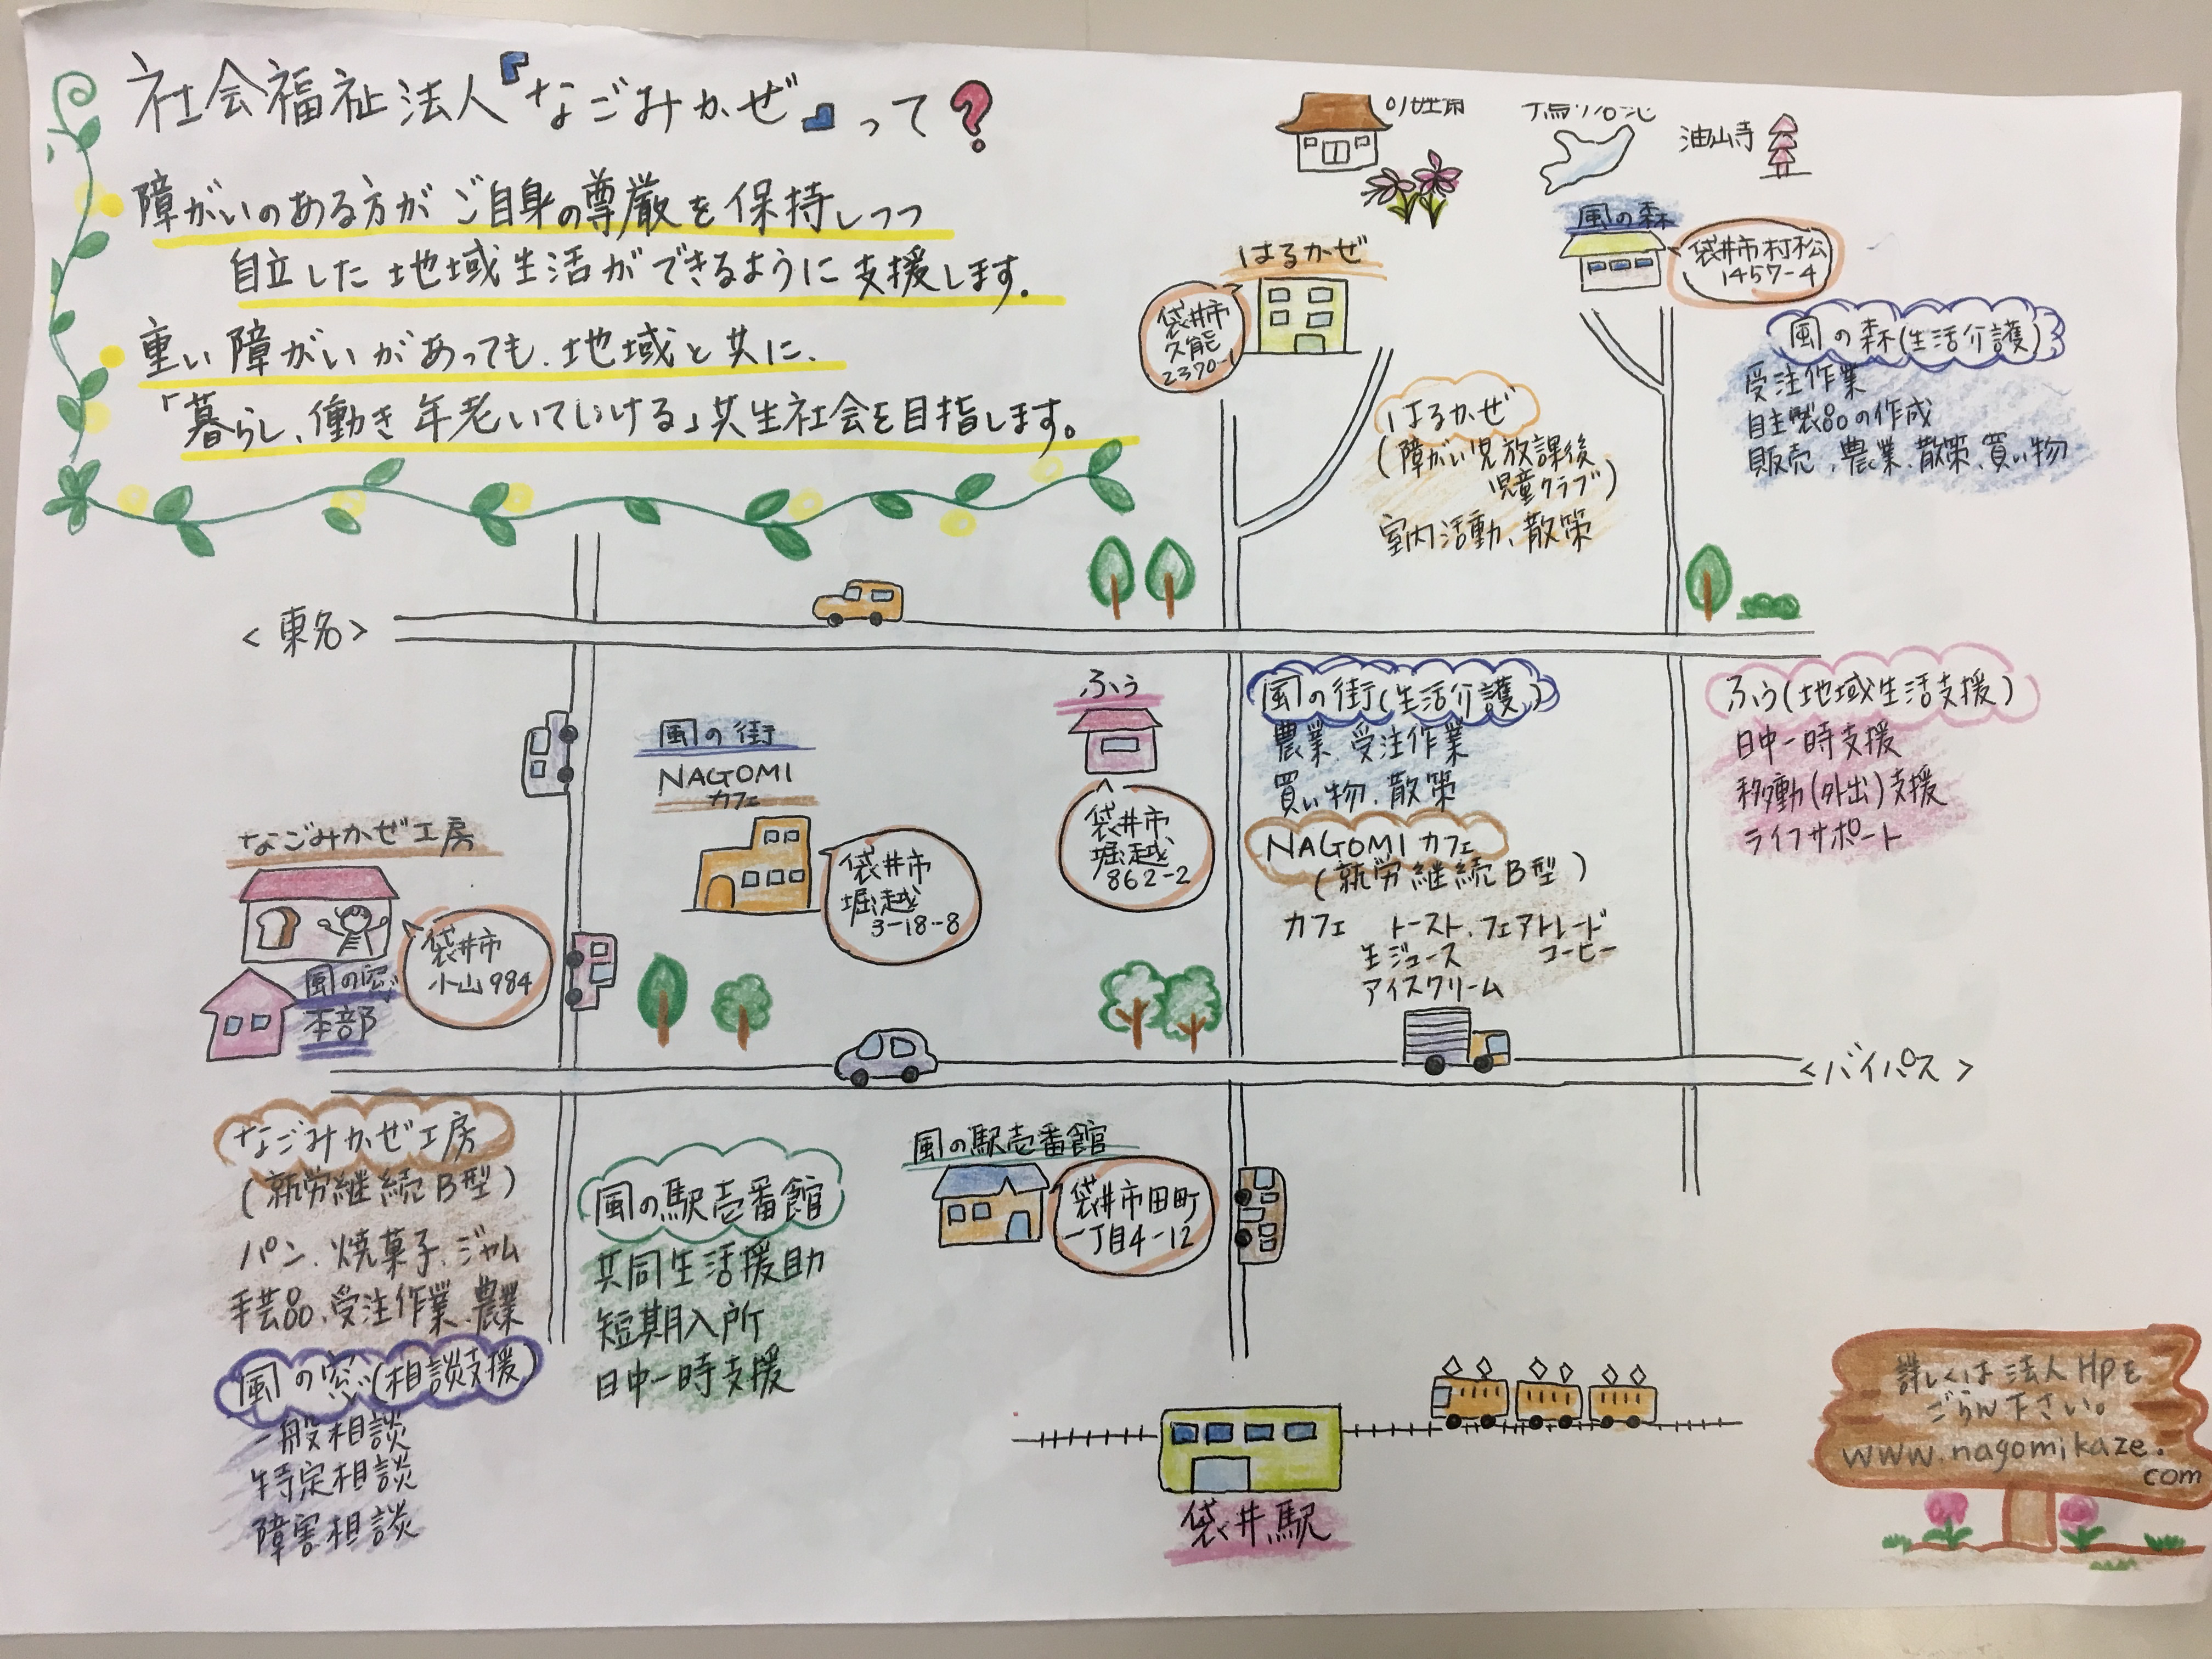 社会福祉法人『なごみかぜ』って?
障がいのある方がご自身の尊厳を保持しつつ
自立した地域生活ができるように支援します。
重い障がいがあっても、地域と共に、
「暮らし、働き年老いていける」共生社会を目指します。
油山寺
風の森
袋井市村松
1457-4
はるかぜ
袋井市
久能
2370-1
風の森(生活介護)
受注作業
自主製品の作成
販売、農業、散策、買い物
はるかぜ
(障がい児放課後
児童クラブ)
室内活動、散策
<東名>
ふう
袋井市
堀越
862-2
風の街
NAGOMI
カフェ
袋井市
堀越
3-18-8
風の街(生活介護)
農業、受注作業
買い物、散策
NAGOMIカフェ
(就労継続B型)
カフェ トースト、フェアトレード
生ジュース コーヒー
アイスクリーム
ふう(地域生活支援)
日中一時支援
移動(外出)支援
ライフサポート
なごみかぜ工房
袋井市
小山984
風の窓
本部
<バイパス>
なごみかぜ工房
(就労継続B型)
パン、焼菓子、ジャム
手芸品、受注作業、農業
風の窓(相談支援)
一般相談
特定相談
障害相談
風の駅壱番館
共同生活援助
短期入所
日中一時支援
風の駅壱番館
袋井市田町
一丁目4-12
袋井駅
詳しくは法人HPを
ごらん下さい。
www.nagomikaze.
com